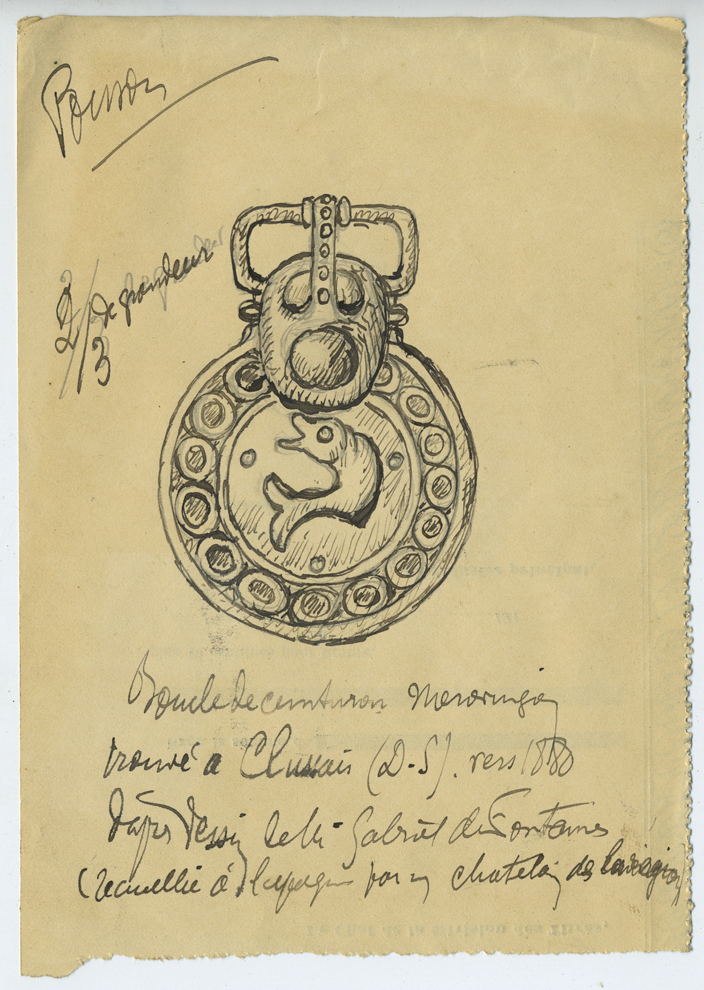 Poisson
2/3 de grandeur
Boucle de ceinturon Merovingien
trouvé a Clussais (D-S). vers 1880
d'après dessin de Mr Gabriel de Fontaines
(recueillie à l'époque par un chatelain de la région)